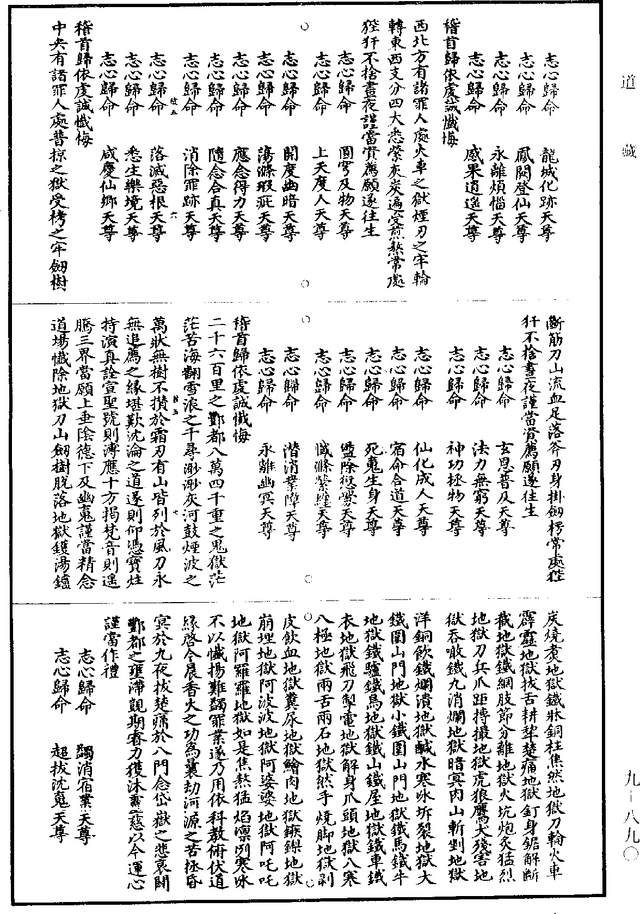 道藏
志心歸命　龍城化跡天尊
志心歸命　鳳闕登仙天尊
志心歸命　永離煩惱天尊
志心歸命　感果逍遥天尊
稽首歸依虔誠懺悔
西北方有諸罪人處火車之獄煙刃之牢輪
轉東西支分四大悉縈灰炭遍受煎熬常處
狴犴不捨晝夜謹當資薦願遂往生
志心歸命　圓穹及物天尊
志心歸命　上天度人天尊
志心歸命　開度幽暗天尊
志心歸命　蕩滌瑕疵天尊
志心歸命　應念得力天尊
志心歸命　隨念合真天尊
志心歸命　消除罪跡天尊
志心歸命　落滅惡根天尊
志心歸命　悉生樂境天尊
志心歸命　咸慶仙鄉天尊
稽首歸依虔誠懺悔
中央有諸罪人處普掠之獄受栲之牢劒樹
斷筋刀山流血足落斧刃身掛劒楞常處狴
犴不捨晝夜謹當資薦願遂往生
志心歸命　玄恩普及天尊
志心歸命　法力無窮天尊
志心歸命　神功拯物天尊
志心歸命　仙化成人天尊
志心歸命　宿命合道天尊
志心歸命　死魂生身天尊
志心歸命　盪除愆釁天尊
志心歸命　懺滌縈纏天尊
志心歸命　潜消業障天尊
志心歸命　永離幽冥天尊
稽首歸依虔誠懺悔
二十六百里之酆都八萬四千重之鬼獄茫
茫苦海翻雪浪之千尋渺渺灰河鼓煙波之
萬狀無樹不攢於霜刃有山皆列於風刀永
無追薦之緣堪歎沈淪之道遂則仰憑寶炷
持演真詮宣聖號則溥應十方揭梵音則遥
騰三界當願上垂陰德下及幽魂謹當精念
道場懺除地獄刀山劒樹脱落地獄鑊湯鑪
炭燒煑地獄鐵牀銅柱焦然地獄刀輪火車
霹靂地獄拔舌耕犂楚痛地獄釘身鋸解斷
截地獄鐵網肢節分離地獄火坑炮炙猛烈
地獄刀兵爪距摶撮地獄虎狼鷹犬殘害地
獄吞噉鐵丸消爛地獄暗冥肉山斬剉地獄
洋銅飲鐵爛潰地獄鹹水寒冰坼裂地獄大
鐵圍山門地獄小鐵圍山門地獄鐵馬鐵牛
地獄鐵驢鐵鳥地獄鐵山鐵屋地獄鐵車鐵
衣地獄飛刀掣電地獄解身爪頭地獄八寒
八極地獄兩舌兩石地獄然手燒脚地獄剥
皮飲血地獄糞尿地獄鱠肉地獄鏃鏁地獄
崩埋地獄阿波波地獄阿婆婆地獄阿吒吒
地獄阿羅羅地獄如是焦熱猛焰凛冽寒冰
不以懺揚難蠲罪業遂乃用依科教俯伏道
緣啓今晨香火之功為曩劫河源之苦拯昏
冥於九夜拔楚痛於八門念岱嶽之悲哀開
酆都之壅滯覬期睿力獲沐玄慈以今運心
謹當作禮
志心歸命　蠲消宿業天尊
志心歸命　超拔沈魂天尊
九－八九〇